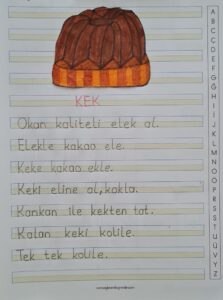 KEK
Okan kaliteli elek al.
Elekle kakao ele.
Keke kakao ekle.
Keki eline al, kokla.
Kankan ile kekten tat.
Kalan keki kolile.
Tek tek kolile.
A
B
C
Ç
D
E
F
G
Ğ
H
I
İ
J
K
L
M
N
O
Ö
P
R
S
Ş
T
U
Ü
V
Y
Z